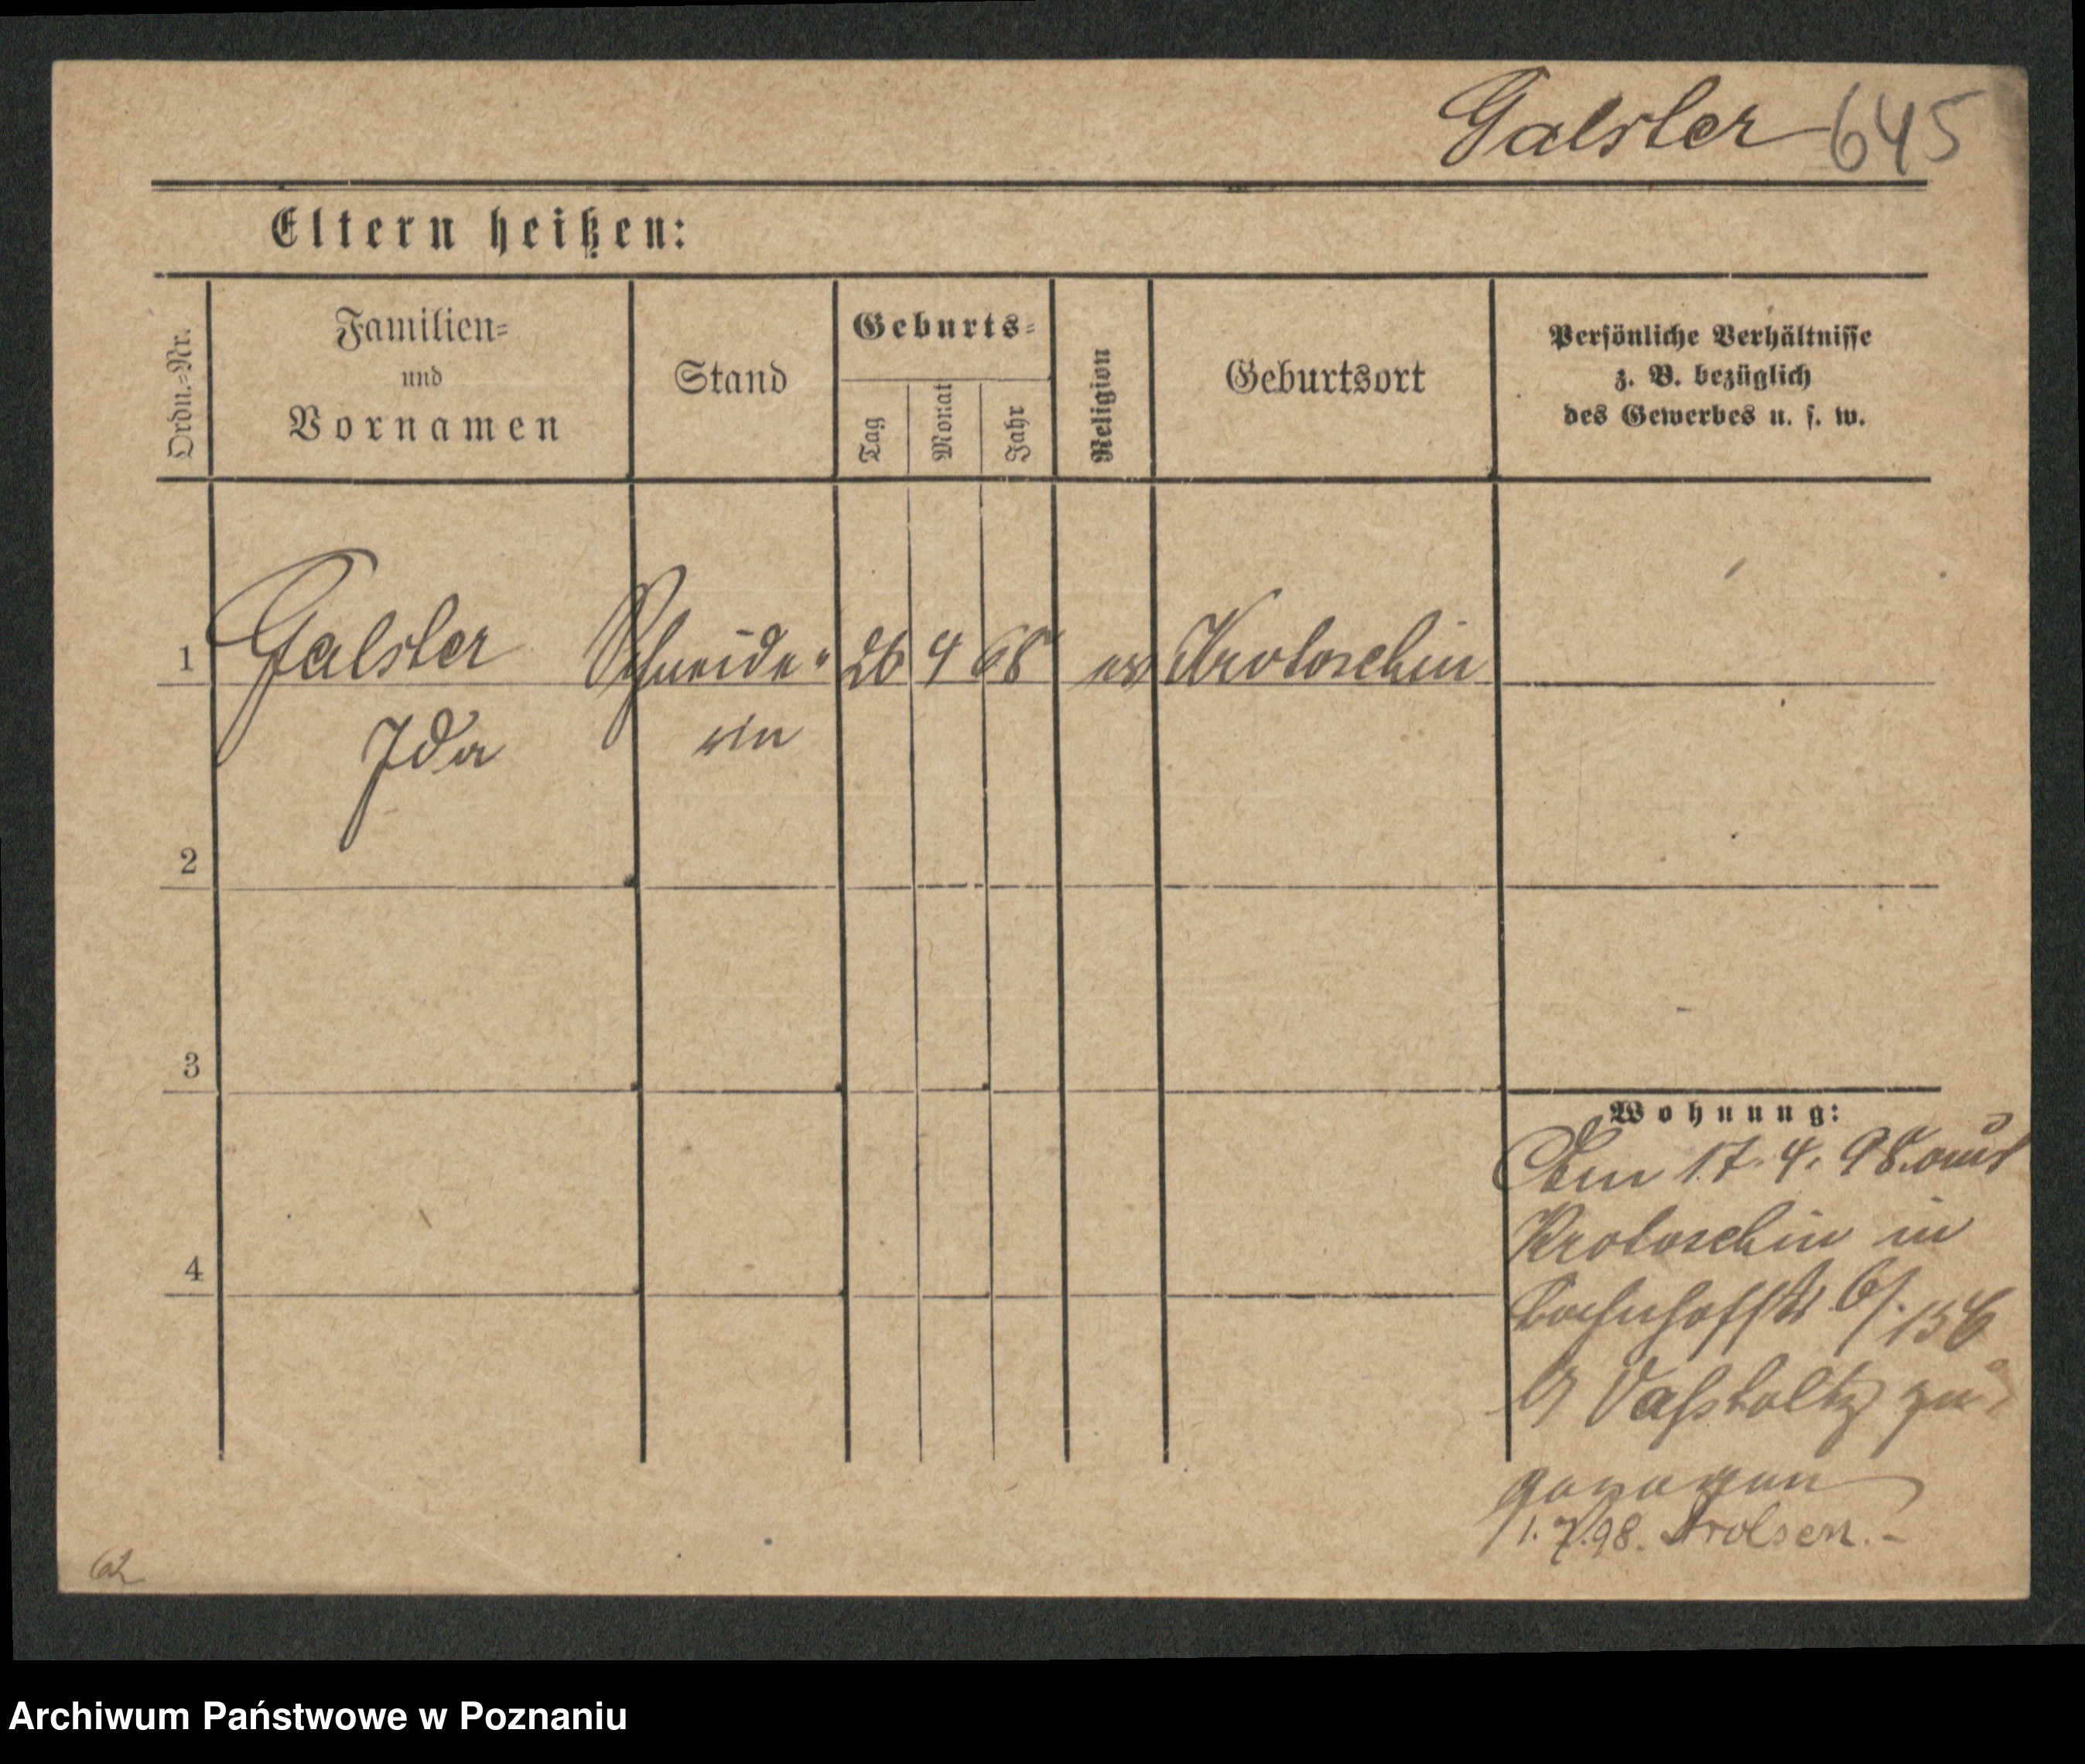 Galster 645
Eltern heißen:
Ordn.=Nr.
Familien=
und
Vornamen
Stand
Geburts=
Tag
Monat
Jahr
Religion
Geburtsort
Persönliche Verhältnisse
z. B. bezüglich
des Gewerbes u. s. w.
1 Galster Schneide= 26 4 68 ev Krotoschin
Ida rin
2
3
4
Wohnung:
Am 17. 4. 98. aus
Krotoschin in
Bahnhofstr 6/. 156
zu=
gezogen
1. 7. 98. Arolsen. -
62
Archiwum Państwowe w Poznaniu